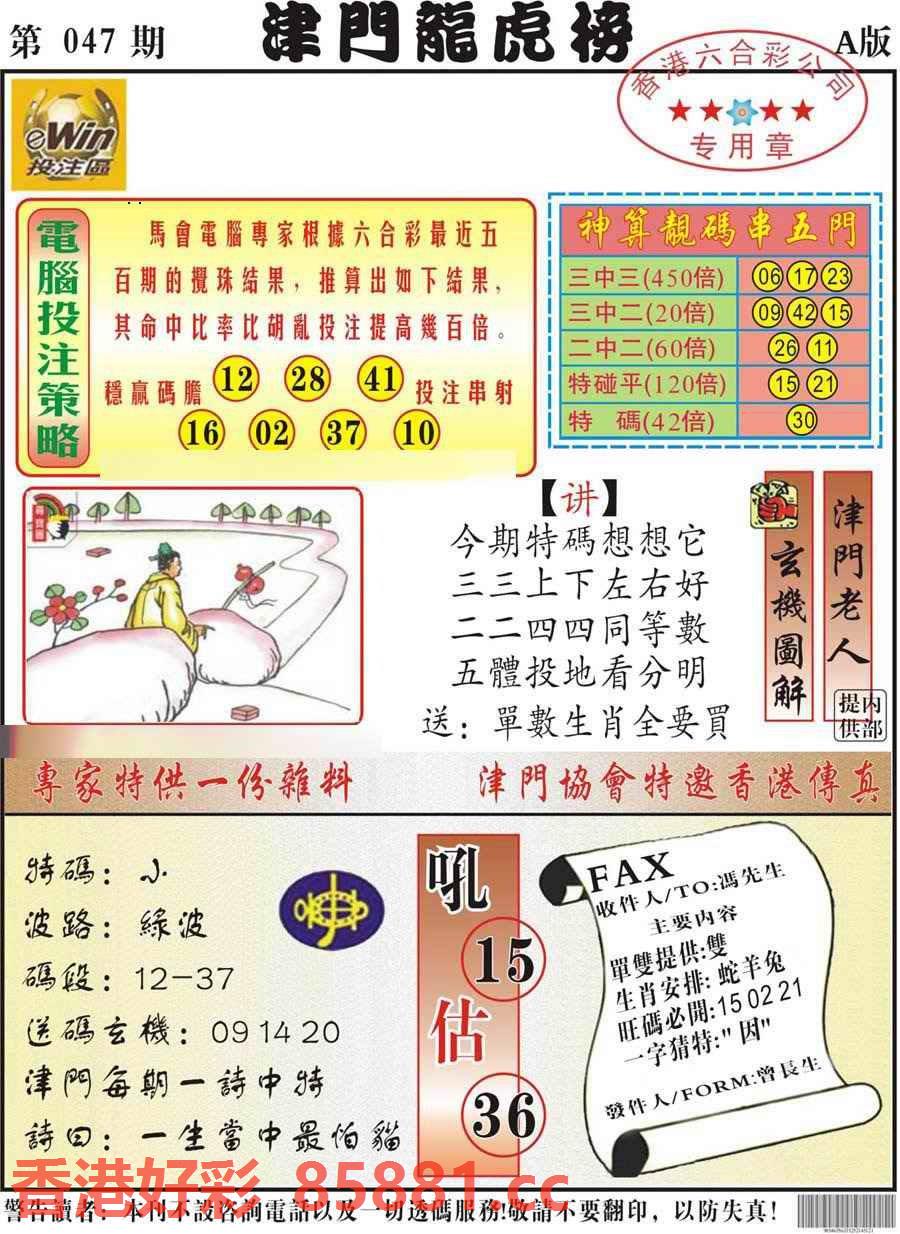 第 047 期
津門龍虎榜
A版
香港六合彩公司
专用章
eWin
投注區
電腦投注策略
馬會電腦專家根據六合彩最近五
百期的攪珠結果，推算出如下結果，
其命中比率比胡亂投注提高幾百倍。
穩贏碼膽 12 28 41 投注串射
16 02 37 10
神算靚碼串五門
三中三(450倍) 06 17 23
三中二(20倍) 09 42 15
二中二(60倍) 26 11
特碰平(120倍) 15 21
特 碼(42倍) 30
尋寶圖
【讲】
今期特碼想想它
三三上下左右好
二二四四同等數
五體投地看分明
送：單數生肖全要買
玄機圖解
津門老人
提内
供部
專家特供一份雜料
津門協會特邀香港傳真
特碼：小
波路：綠波
碼段：12-37
送碼玄機：09 14 20
津門每期一詩中特
詩曰：一生當中最怕貓
吼
15
估
36
FAX
收件人/TO:馮先生
主要内容
單雙提供:雙
生肖安排:蛇羊兔
旺碼必開:15 02 21
一字猜特:"因"
發件人/FORM:曾長生
香港好彩 85881.cc
警告讀者：本刊不設咨詢電話以及一切透碼服務!敬請不要翻印，以防失真!